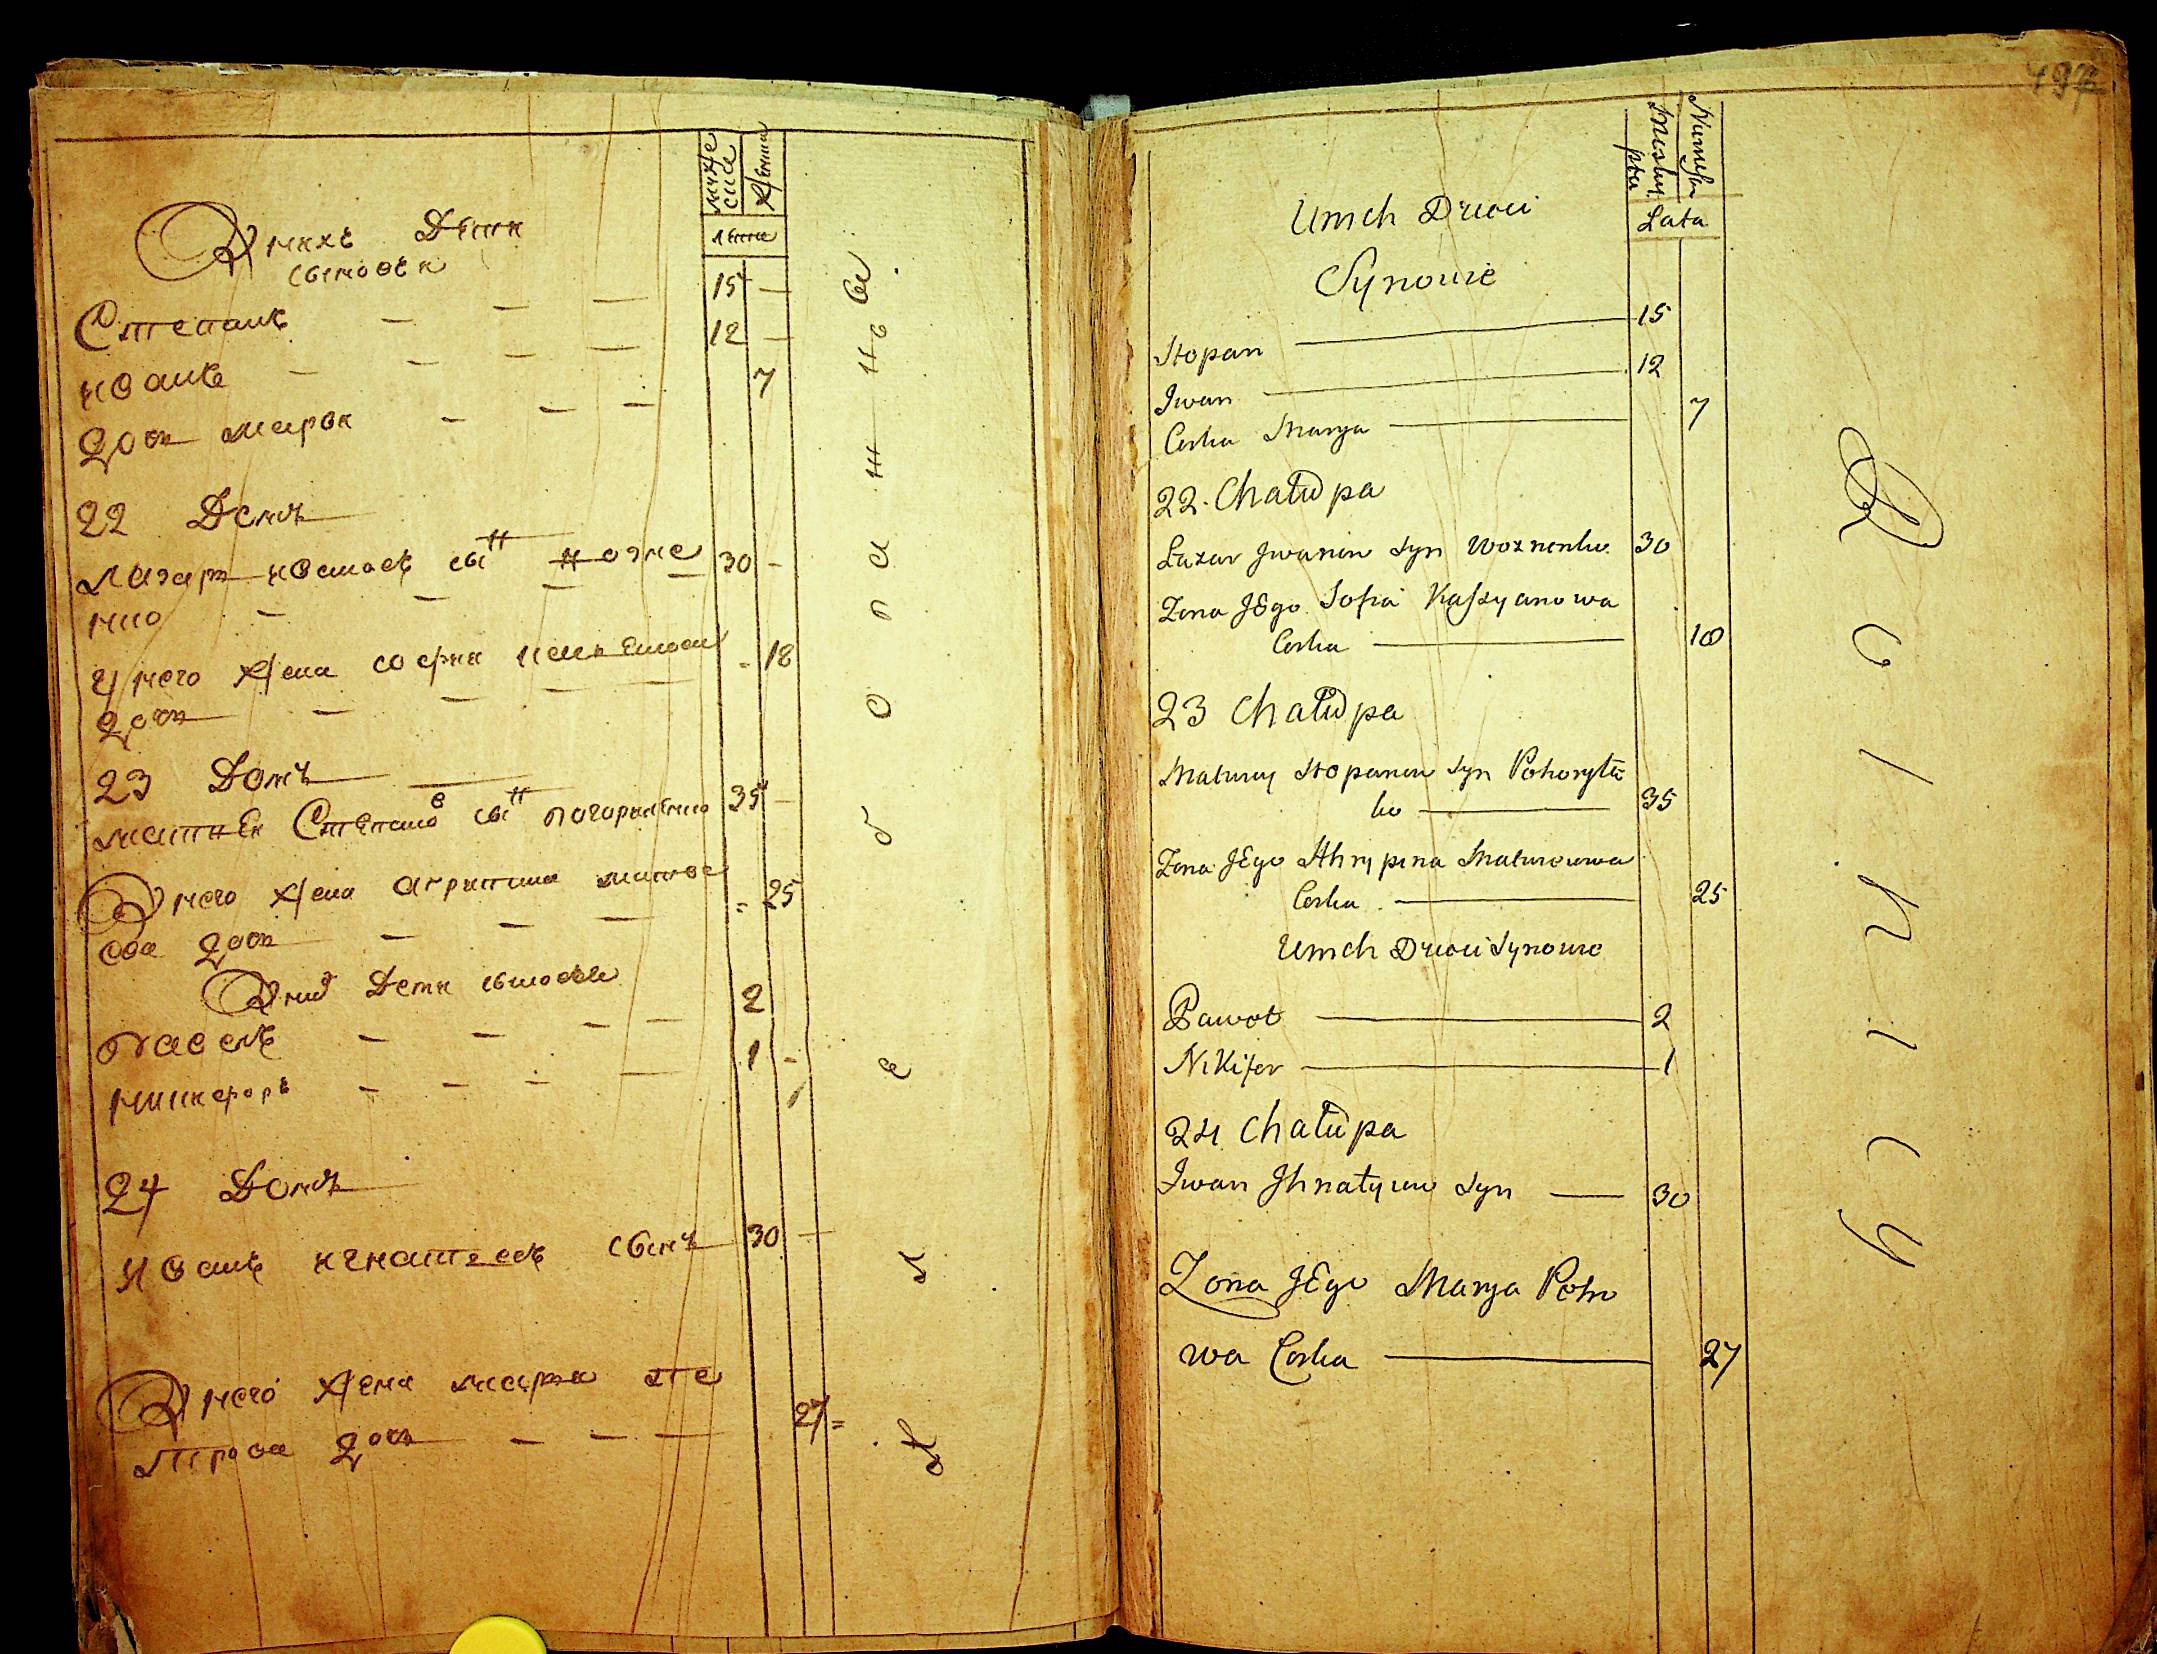 мужеска
женска
лета
У нихъ Дети
сыновѣи
Степанъ — — — 15 —
Иванъ — — — — 12 —
доч Мария — — — 7
22 Домъ
Лазарь Ивановъ сынъ
30 -
У него жена София
- 18
доч — — — —
23 Домъ
Матвей Степанов сын Погорилено
35 -
У него жена Агрипина Матве
= 25
ова доч — — —
У них Дети сынове
Павелъ — — — — 2
Никифоръ — — — — 1 -
24 Домъ
Иванъ Игнатовъ сынъ 30 —
У него жена Мария Пе
трова доч — — — 27 =
197
Męsky
płci
Lata
Umch Dzieci
Synowie
Stopan 15
Iwan 12
Corka Marya 7
22. Chałupa
Łazar Iwanow Syn Woznenko 30
Zona JEgo Sofia Kaszyanowa
Corka 18
23 Chałupa
Matwiy Stopanow Syn Pohoryłe
ko 35
Zona JEgo Ahrypina Matwiowa
Corka 25
Umch Dzieci Synowie
Paweł 2
Nikifor 1
24 Chałupa
Iwan Ihnatyiow Syn — 30
Zona JEgo Marya Petro
wa Corka 27
Rolnicy